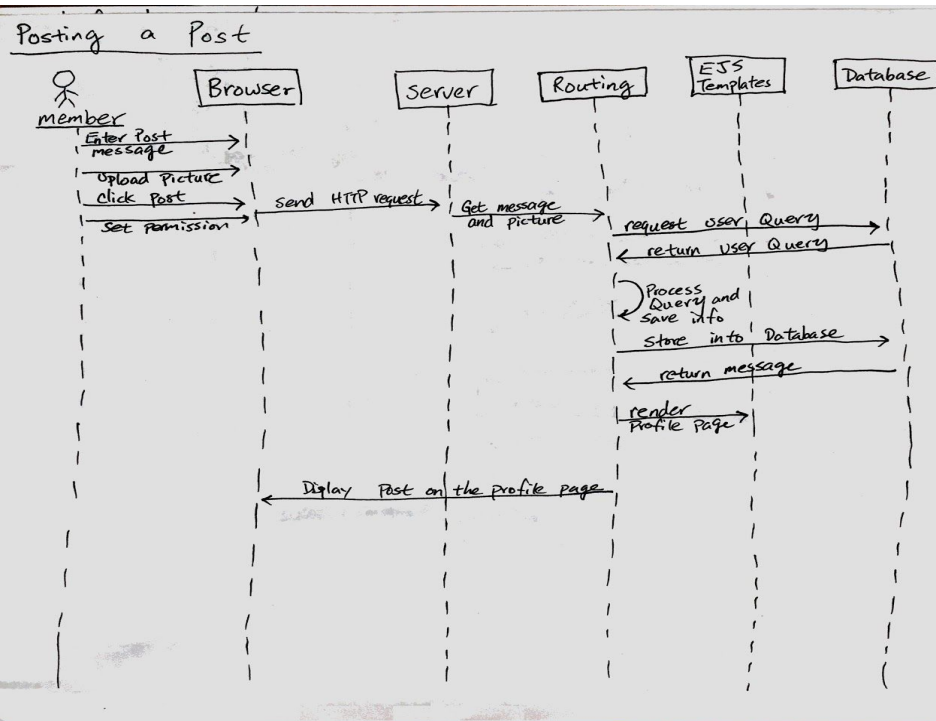 Posting a Post
member
Browser
Server
Routing
EJS
Templates
Database
Enter Post
message
Upload Picture
click Post
Set Permission
Send HTTP request
Get message
and Picture
request User Query
return User Query
Process
Query and
save info
Store into Database
return message
render
Profile Page
Diplay Post on the profile page